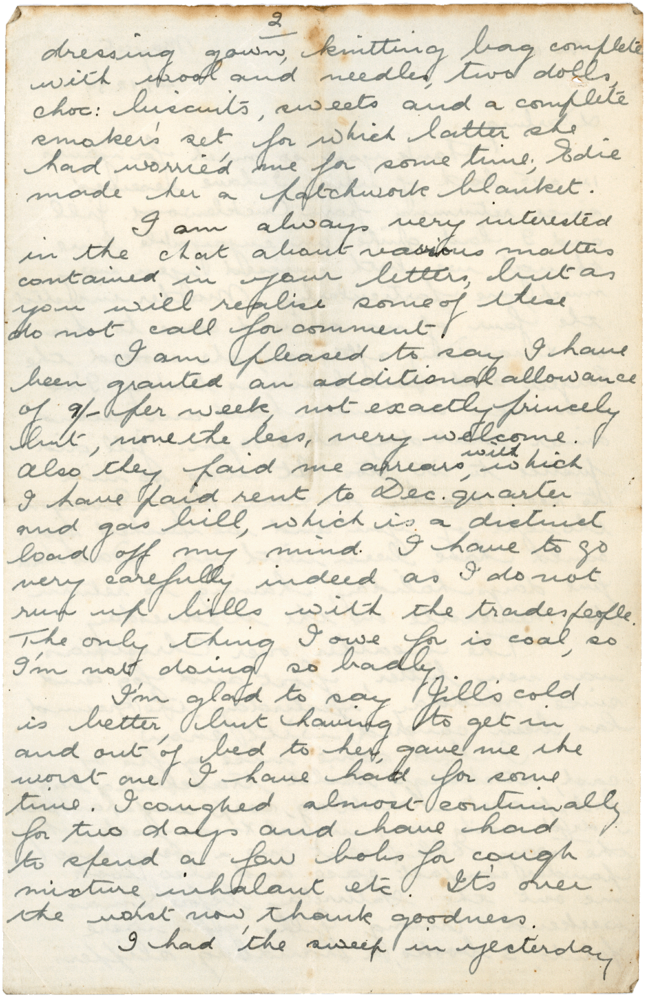 2
dressing gown, knitting bag complete
with wool and needles, two dolls,
choc: biscuits, sweets and a complete
smoker's set, for which latter she
had worried me for some time, Edie
made her a patchwork blanket.
I am always very interested
in the chat about various matters
contained in your letters, but as
you will realise some of these
do not call for comment.
I am pleased to say I have
been granted an additional allowance
of 9/- per week, not exactly princely
but, none the less, very welcome.
Also they paid me arrears, with which
I have paid rent to Dec. quarter
and gas bill, which is a distinct
load off my mind. I have to go
very carefully indeed as I do not
run up bills with the tradespeople.
The only thing I owe for is coal, so
I'm not doing so badly.
I'm glad to say Jill's cold
is better, but having to get in
and out of bed to her, gave me the
worst one I have had for some
time. I coughed almost continually
for two days and have had
to spend a few bobs for cough
mixture inhalant etc. It's over
the worst now, thank goodness.
I had the sweep in yesterday